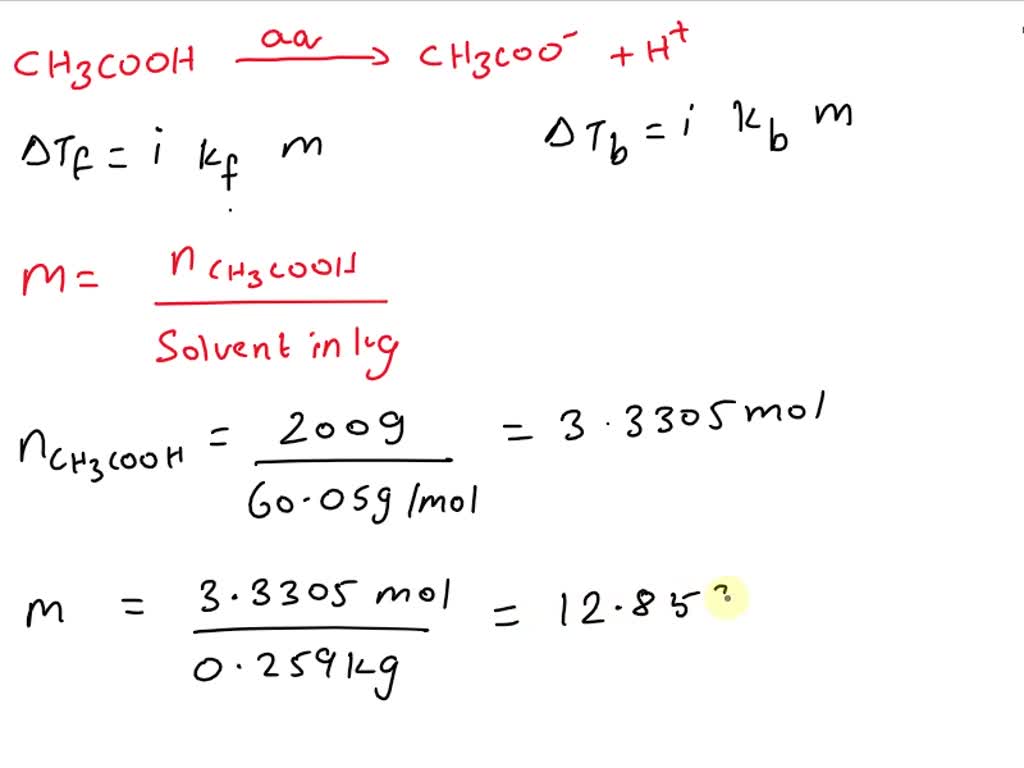 CH3COOH aq → CH3COO⁻ + H⁺
ΔTf = i kf m
ΔTb = i kb m
m = nCH3COOH / Solvent in kg
nCH3COOH = 200g / 60.05g/mol = 3.3305 mol
m = 3.3305 mol / 0.259 kg = 12.85